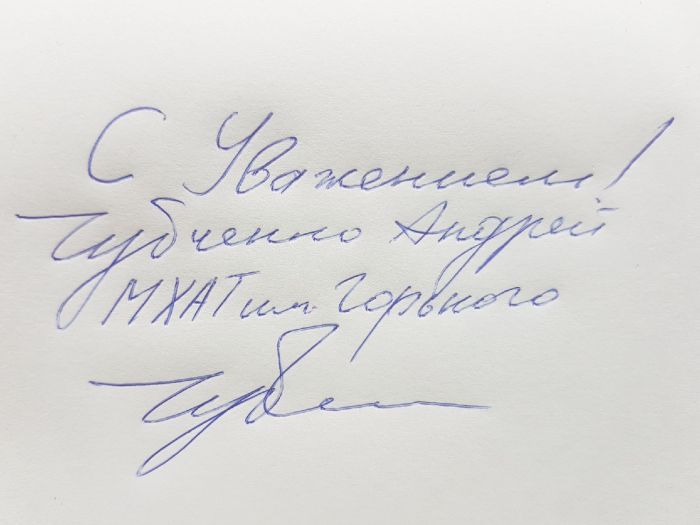 С Уважением!
Чубченко Андрей
МХАТ им. Горького